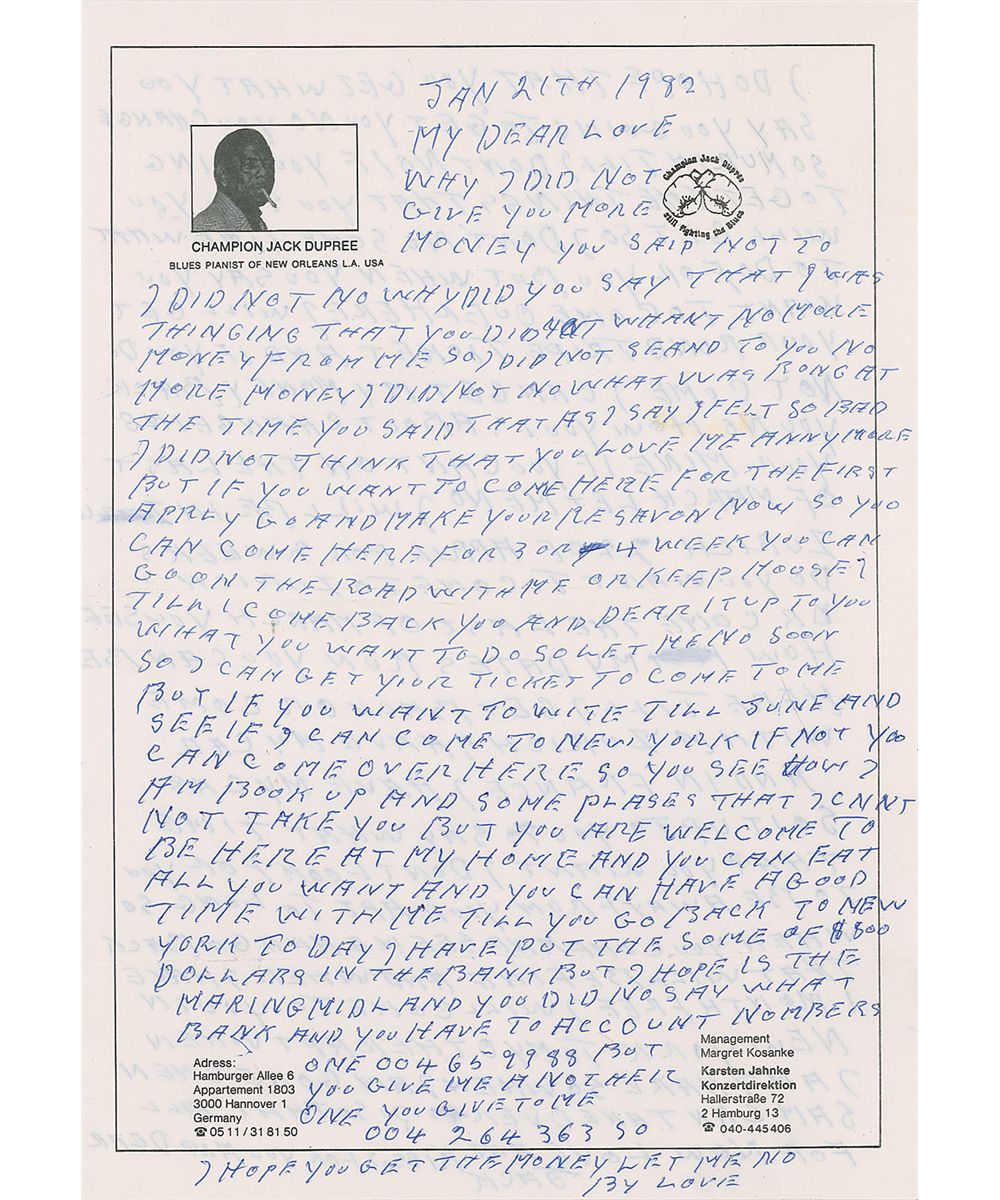 JAN 21TH 1982
MY DEAR LOVE
WHY I DID NOT
GIVE YOU MORE
MONEY YOU SAID NOT TO
Champion Jack Dupree
Still Fighting the Blues
CHAMPION JACK DUPREE
BLUES PIANIST OF NEW ORLEANS L.A. USA
I DID NOT NO WHY DID YOU SAY THAT I WAS
THINGING THAT YOU DID NT WHANT NO MORE
MONEY FROM ME SO I DID NOT SEAND TO YOU NO
MORE MONEY I DID NOT NO WHAT WAS RONG AT
THE TIME YOU SAID THAT AS I SAY I FELT SO BAD
I DID NOT THINK THAT YOU LOVE ME ANNY MORE
BUT IF YOU WANT TO COME HERE FOR THE FIRST
APRLY GO AND MAKE YOUR RESAVON NOW SO YOU
CAN COME HERE FOR 3 OR 4 WEEK YOU CAN
GO ON THE ROAD WITH ME OR KEEP HOOSE
TILL I COME BACK YOU AND DEAR IT UP TO YOU
WHAT YOU WANT TO DO SO LET ME NO SOON
SO I CAN GET YOUR TICKET TO COME TO ME
BUT IF YOU WANT TO WITE TILL JUNE AND
SEE IF I CAN COME TO NEW YORK IF NOT YOU
CAN COME OVER HERE SO YOU SEE HOW I
AM BOOK UP AND SOME PLASES THAT I CNNT
NOT TAKE YOU BUT YOU ARE WELCOME TO
BE HERE AT MY HOME AND YOU CAN EAT
ALL YOU WANT AND YOU CAN HAVE A GOOD
TIME WITH ME TILL YOU GO BACK TO NEW
YORK TO DAY I HAVE PUT THE SOME OF $800
DOLLARS IN THE BANK BUT I HOPE IS THE
MARING MIDLAND YOU DID NO SAY WHAT
BANK AND YOU HAVE TO ACCOUNT NOMBERS
ONE 004 65 9988 BUT
YOU GIVE ME A NOTHER
ONE YOU GIVE TO ME
004 264 363 SO
Adress:
Hamburger Allee 6
Appartement 1803
3000 Hannover 1
Germany
☎ 05 11 / 31 81 50
Management
Margret Kosanke
Karsten Jahnke
Konzertdirektion
Hallerstraße 72
2 Hamburg 13
☎ 040-445 406
I HOPE YOU GET THE MONEY LET ME NO
BY LOVE